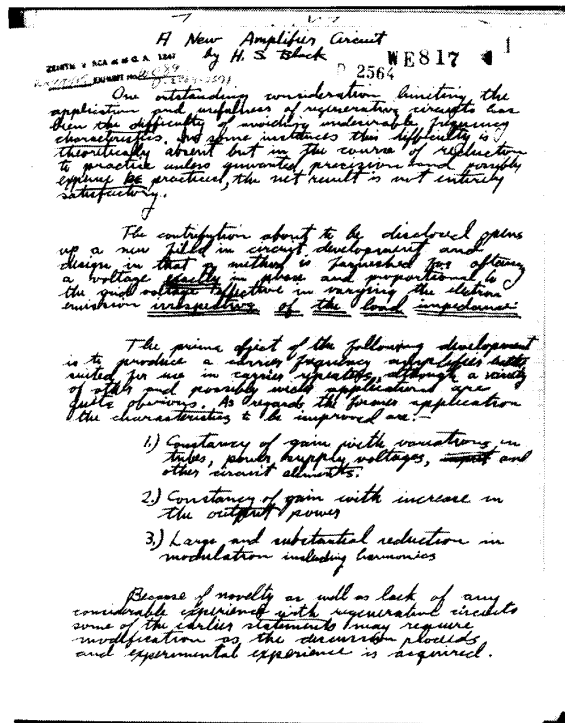 A New Amplifier Circuit
by H. S. Black
WE817
1
ZENITH v RCA et al C. A. 1247
EXHIBIT No.
2564
One outstanding consideration limiting the
application and usefulness of regenerative circuits has
been the difficulty of avoiding undesirable frequency
characteristics. In some instances this difficulty is
theoretically absent but in the course of reduction
to practice unless unwanted precision and possibly
expense be practiced, the net result is not entirely
satisfactory.
The contribution about to be disclosed opens
up a new field in circuit development and
design in that a method is furnished for
a voltage in phase and proportional to
the grid voltage effective in varying the electron
emission irrespective of the load impedance.
The prime object of the following development
is to produce a carrier frequency amplifier better
suited for use in carrier repeaters, although a variety
of other and possibly applications are
quite obvious. As regards the former application
the characteristics to be improved are:-
1.) Constancy of gain with variations in
tubes, power supply voltages, and
other circuit elements.
2.) Constancy of gain with increase in
the output power
3.) Large and substantial reduction in
modulation including harmonics
Because of novelty as well as lack of any
considerable experience with regenerative circuits
some of the earlier statements may require
modification as the discussion proceeds
and experimental experience is acquired.